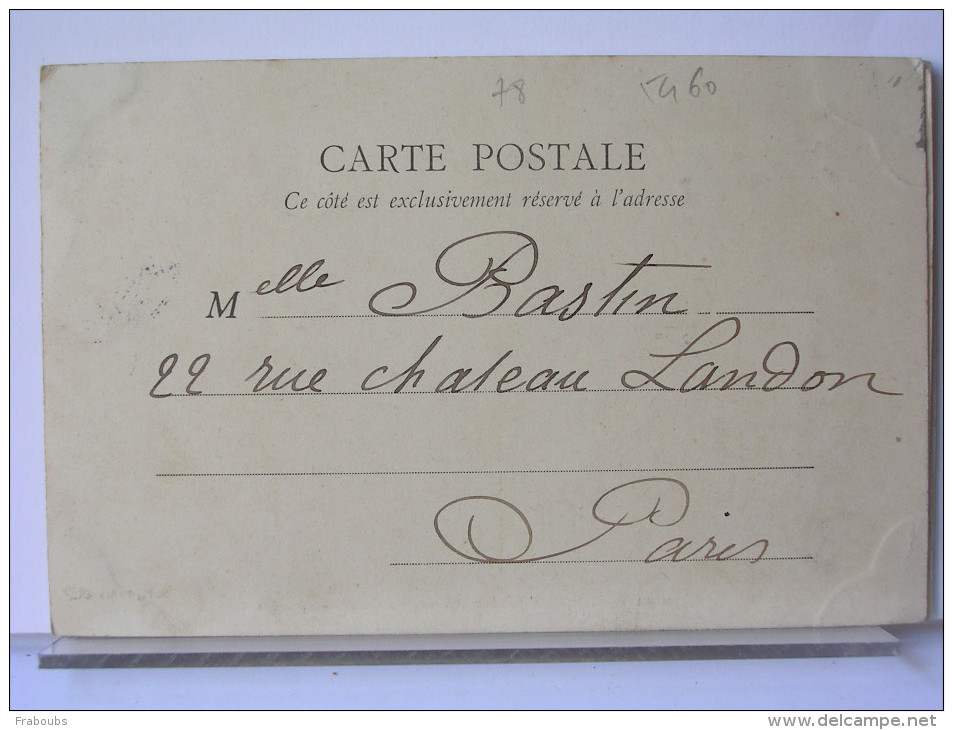 78
CARTE POSTALE
Ce côté est exclusivement réservé à l'adresse
Melle Bastin
22 rue chateau Landon
Paris
Fraboubs
www.delcampe.net